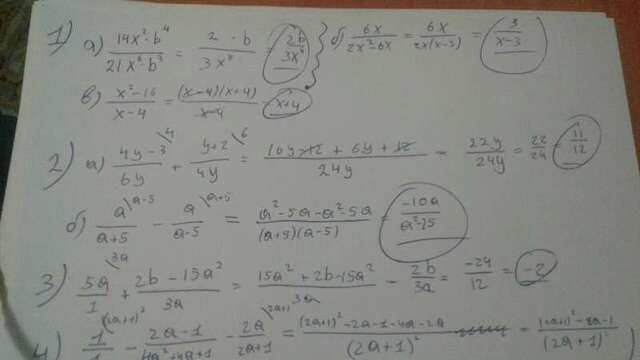 1) а) 14x²·b⁴ / 21x⁸·b³ = 2·b / 3x⁸ = 2b / 3x⁸ } б) 6x / 2x²-6x = 6x / 2x(x-3) = 3 / x-3
в) x²-16 / x-4 = (x-4)(x+4) / x-4 = x+4
2) а) 4y-3 \4 / 6y + y+2 \6 / 4y = 16y-12+6y+12 / 24y = 22y / 24y = 22 / 24 = 11 / 12
б) a \a-5 / a+5 - a \a+5 / a-5 = a²-5a-a²-5a / (a+5)(a-5) = -10a / a²-25
3) 5a \3a / 1 + 2b-15a² / 3a = 15a²+2b-15a² / 3a = 2b / 3a = -24 / 12 = -2
4) 1 \(2a+1)² / 1 - 2a-1 / 4a²+4a+1 - 2a \2a+1 / 2a+1 = (2a+1)²-2a-1-4a-2a / (2a+1)² = (2a+1)²-8a-1 / (2a+1)²